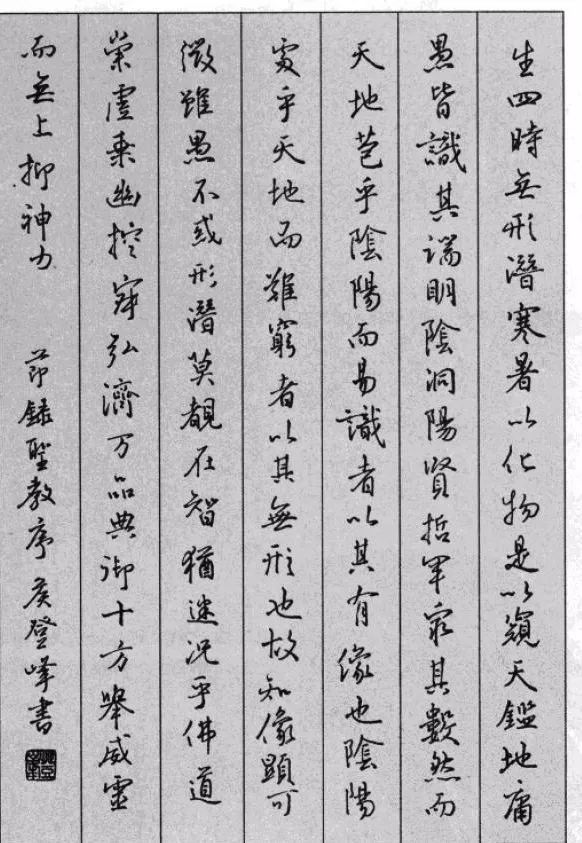 生四時無形潛寒暑以化物是以窺天鑑地庸
愚皆識其端明陰洞陽賢哲罕窮其數然而
天地苞乎陰陽而易識者以其有像也陰陽
處乎天地而難窮者以其無形也故知像顯可
徵雖愚不或形潛莫覩在智猶迷況乎佛道
崇虛乘幽控寂弘濟万品典御十方舉威靈
而無上抑神力 節録聖教序 侯登峰書